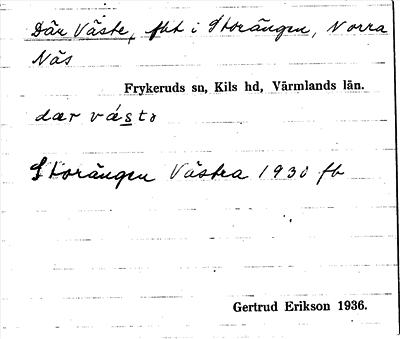 Där Väste, fbt i Storängen, Norra
Näs
Frykeruds sn, Kils hd, Värmlands län.
dær vásto
Storängen Västra 1930 fb
Gertrud Erikson 1936.